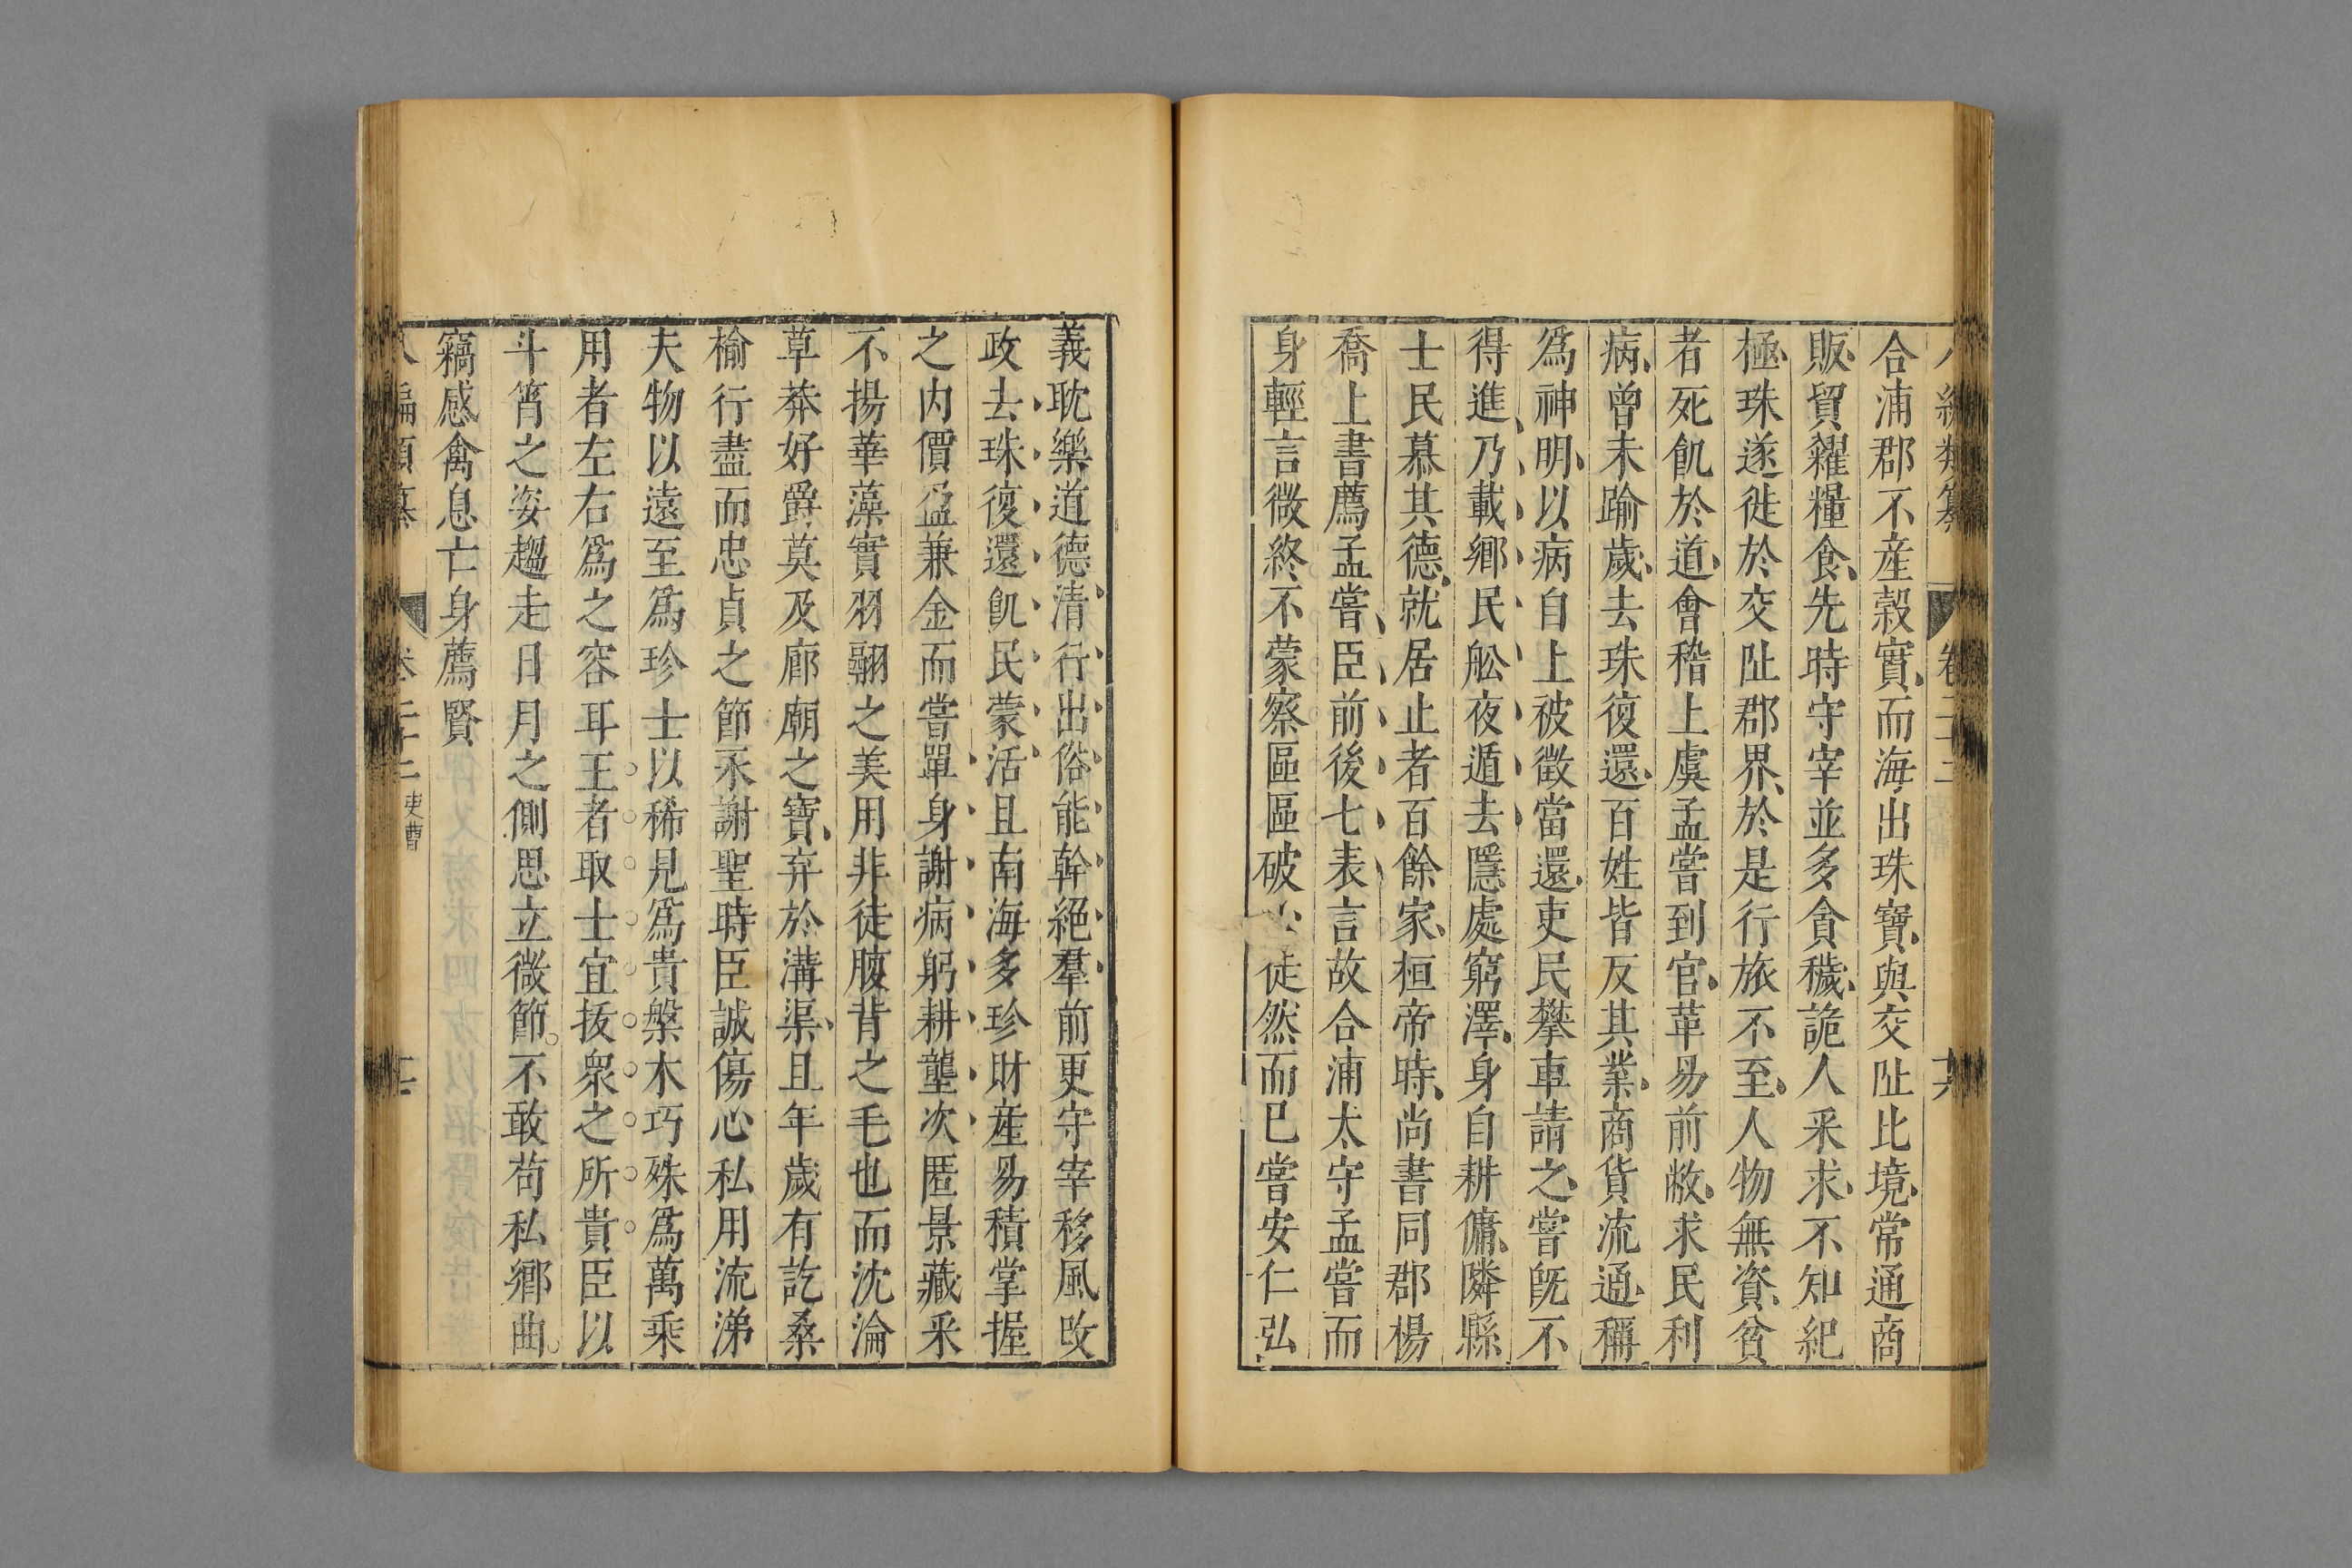 合浦郡不産穀實而海出珠寶與交阯比境常通商
販貿糴糧食先時守宰並多貪穢詭人采求不知紀
極珠遂徙於交阯郡界於是行旅不至人物無資貧
者死飢於道會稽上虞孟嘗到官革易前敝求民利
病曾未踰歲去珠復還百姓皆反其業商貨流通稱
爲神明以病自上被徵當還吏民攀車請之嘗旣不
得進乃載鄉民舩夜遁去隱處窮澤身自耕傭隣縣
士民慕其德就居止者百餘家桓帝時尚書同郡楊
喬上書薦孟嘗臣前後七表言故合浦太守孟嘗而
身輕言微終不蒙察區區破徒然而已嘗安仁弘
義耽樂道德清行出俗能幹絕羣前更守宰移風改
政去珠復還飢民蒙活且南海多珍財產易積掌握
之内價盈兼金而嘗單身謝病躬耕壟次匿景藏采
不揚華藻實羽翮之美用非徒腹背之毛也而沈淪
草莽好爵莫及廊廟之寶弃於溝渠且年歲有訖桑
榆行盡而忠貞之節永謝聖時臣誠傷心私用流涕
夫物以遠至爲珍士以稀見爲貴槃木巧殊爲萬乘
用者左右爲之容耳王者取士宜拔衆之所貴臣以
斗筲之姿趨走日月之側思立微節不敢苟私鄉曲
竊感禽息亡身薦賢
卷二十二 吏曹